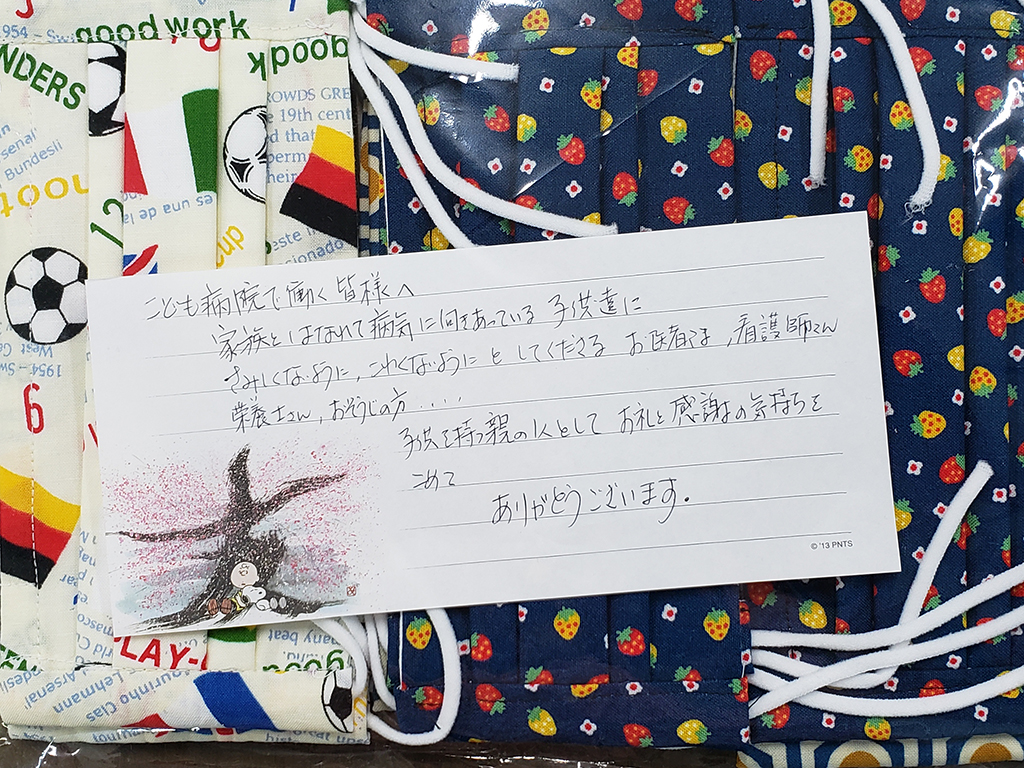 こども病院で働く皆様へ
家族とはなれて病気に向きあっている子供達に
さみしくないように、こわくないようにと してくださる お医者さま、看護師さん
栄養士さん、おそうじの方・・・・
子供を持つ親の1人として お礼と感謝の気持ちを
こめて
ありがとうございます。
© '13 PNTS
good work
good
1954 - Sw
NDERS
ROWDS GRE
e 19th cent
d that
perm
Bundesli
12
es una de la
6
1954-Sw
West Ge
LAY-
many beat
good
Lehmann